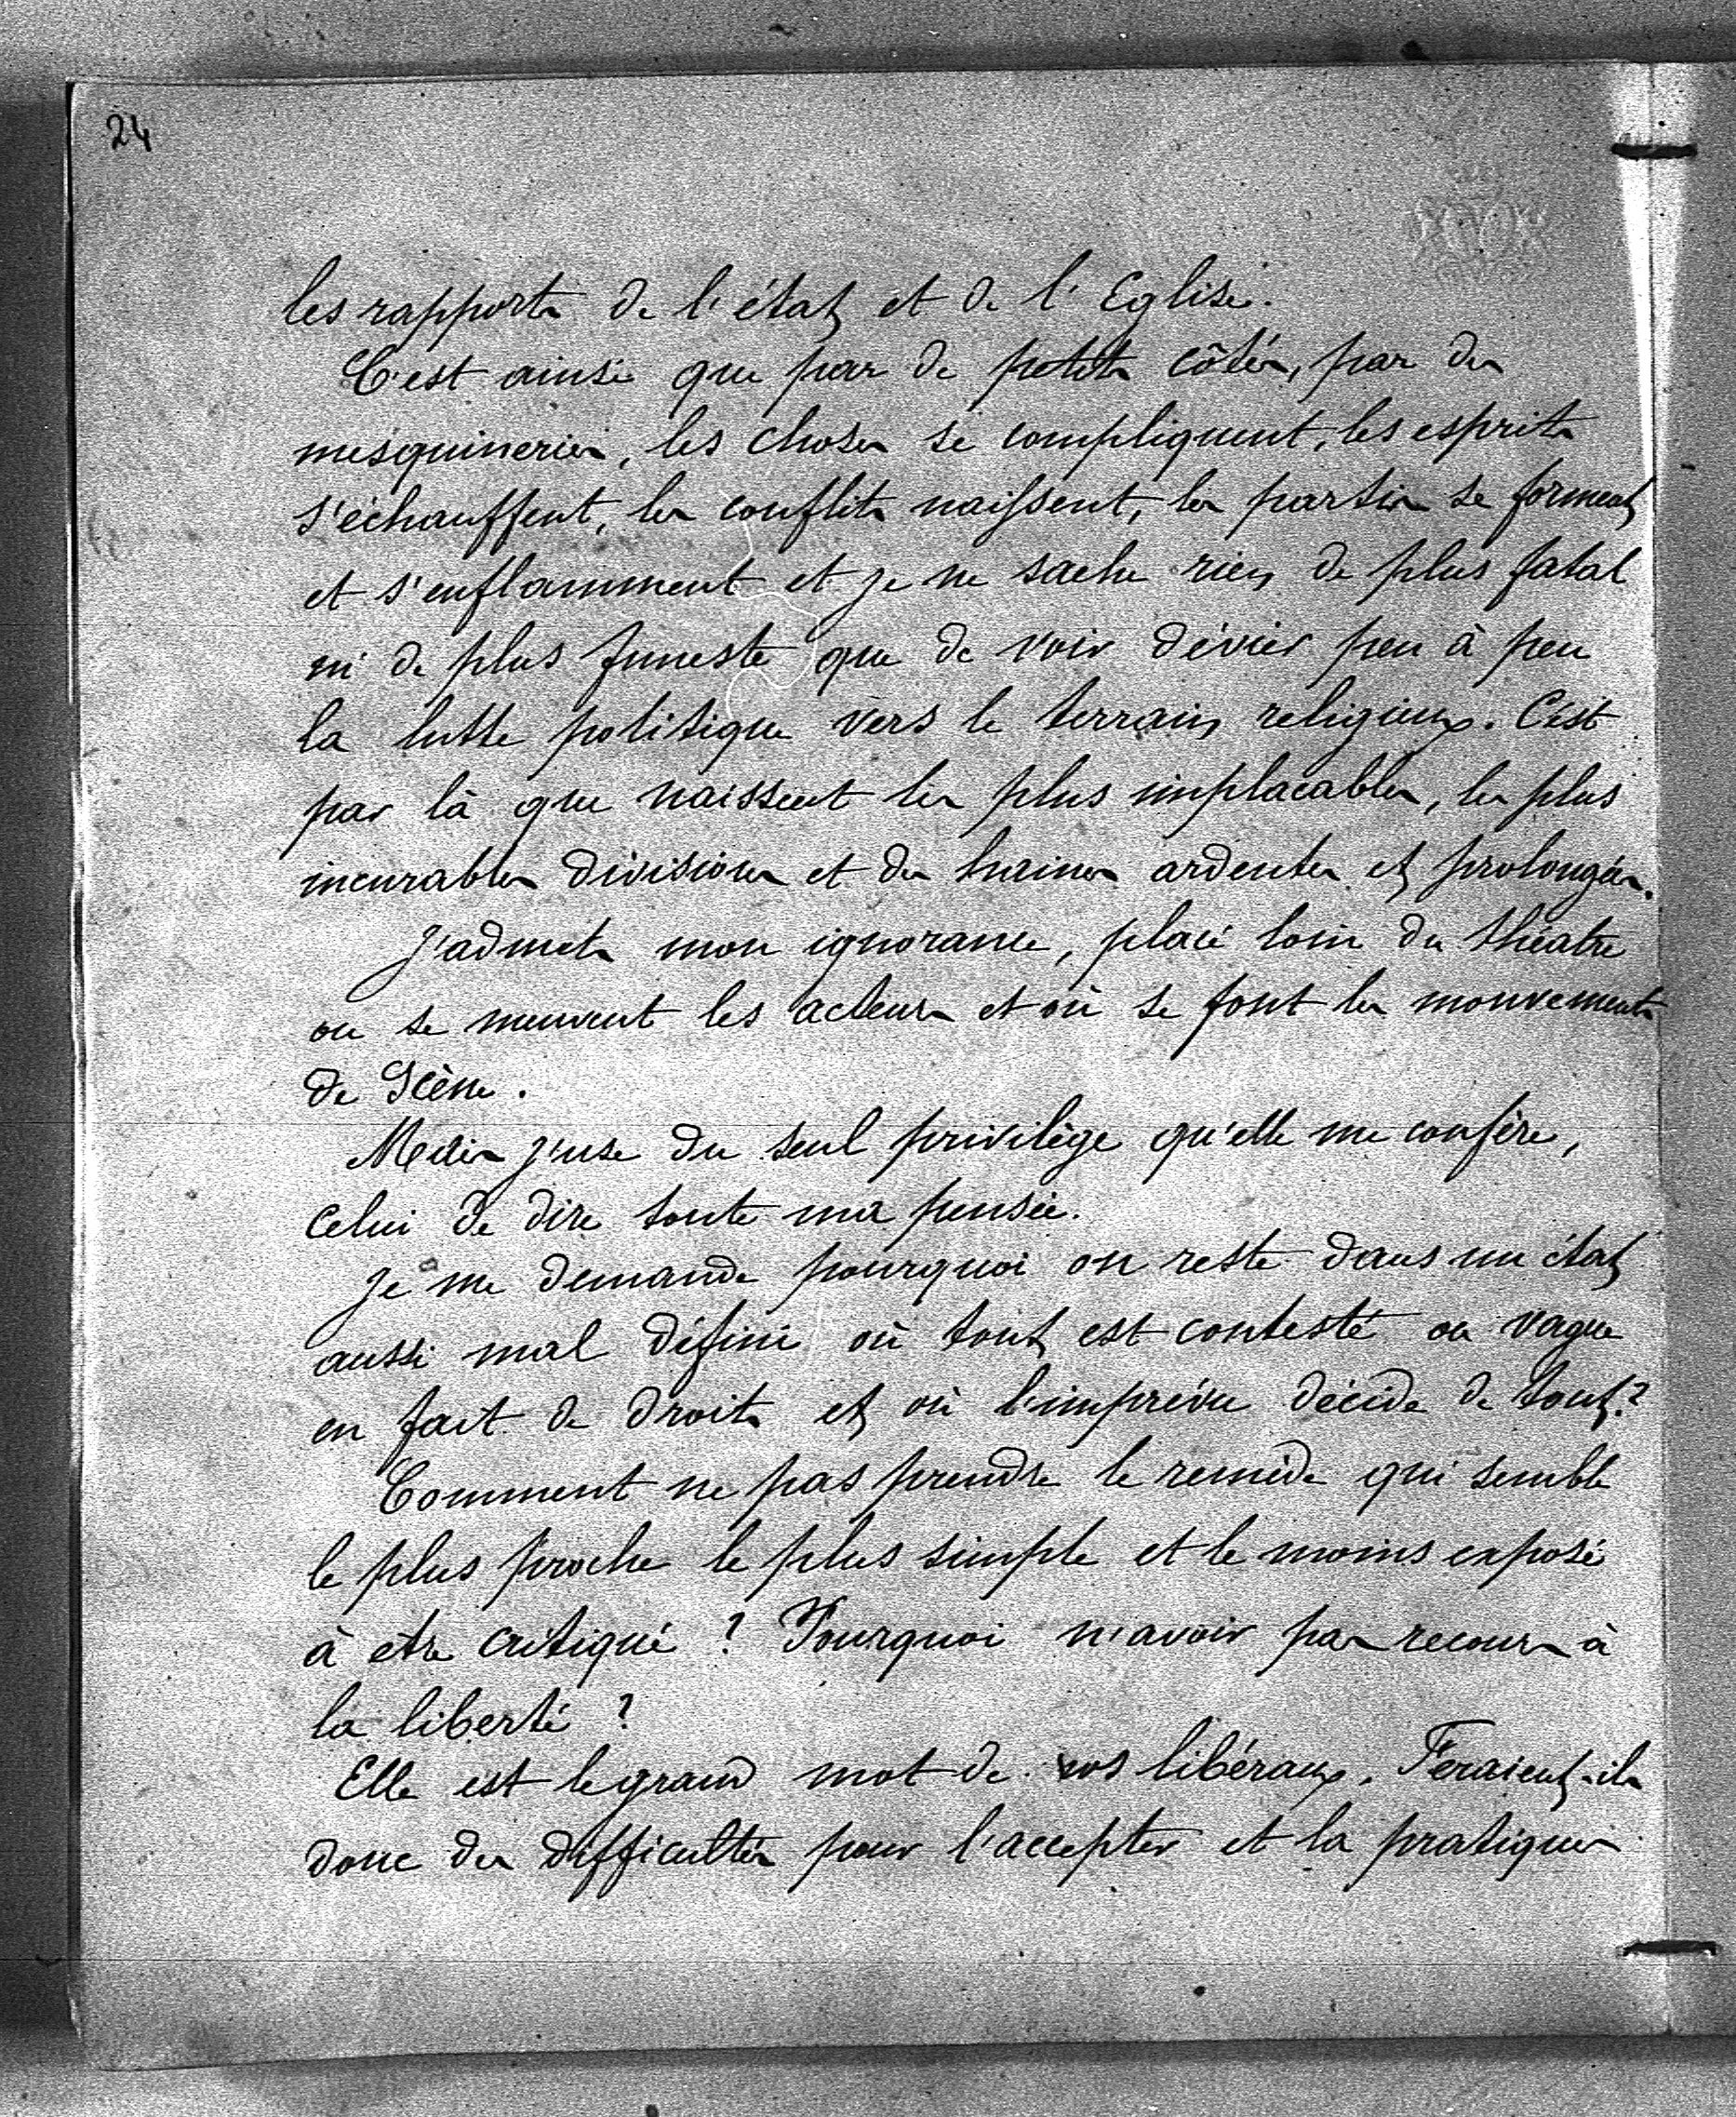 24
les rapports de l'état et de l'Eglise.
C'est ainsi que par de petits côtés, par des
mesquineries, les choses se compliquent, les esprits
s'échauffent, les conflits naissent, les partis se forment
et s'enflamment et je ne sache rien de plus fatal
ni de plus funeste que de voir dévier peu à peu
la lutte politique vers le terrain religieux. C'est
par là que naissent les plus implacables, les plus
incurables divisions et des haines ardentes et prolongées.
J'admets mon ignorance, placé loin du théatre
ou se meuvent les acteurs et où se font les mouvements
de Scène.
Mais j'use du seul privilège qu'elle me confère,
celui de dire toute ma pensée.
Je me demande pourquoi on reste dans un état
aussi mal défini où tout est contesté ou vague
en fait de droits et où l'imprévu décide de tout?
Comment ne pas prendre le remède qui semble
le plus proche le plus simple et le moins exposé
à etre critiqué ? Pourquoi n'avoir pas recours à
la liberté ?
Elle est le grand mot de vos libéraux. Feraient-ils
donc des difficultés pour l'accepter et la pratiquer